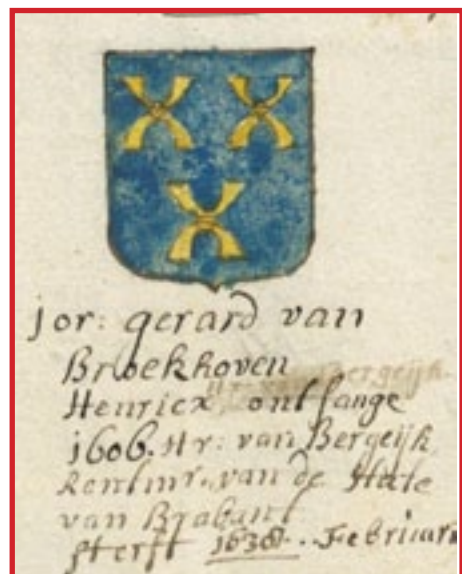 jor: gerard van
Broekhoven
Henricx ontfange
1606. Hr: van Bergeijk
Rentmr. van de State
van Brabant
sterft 1638. Februari